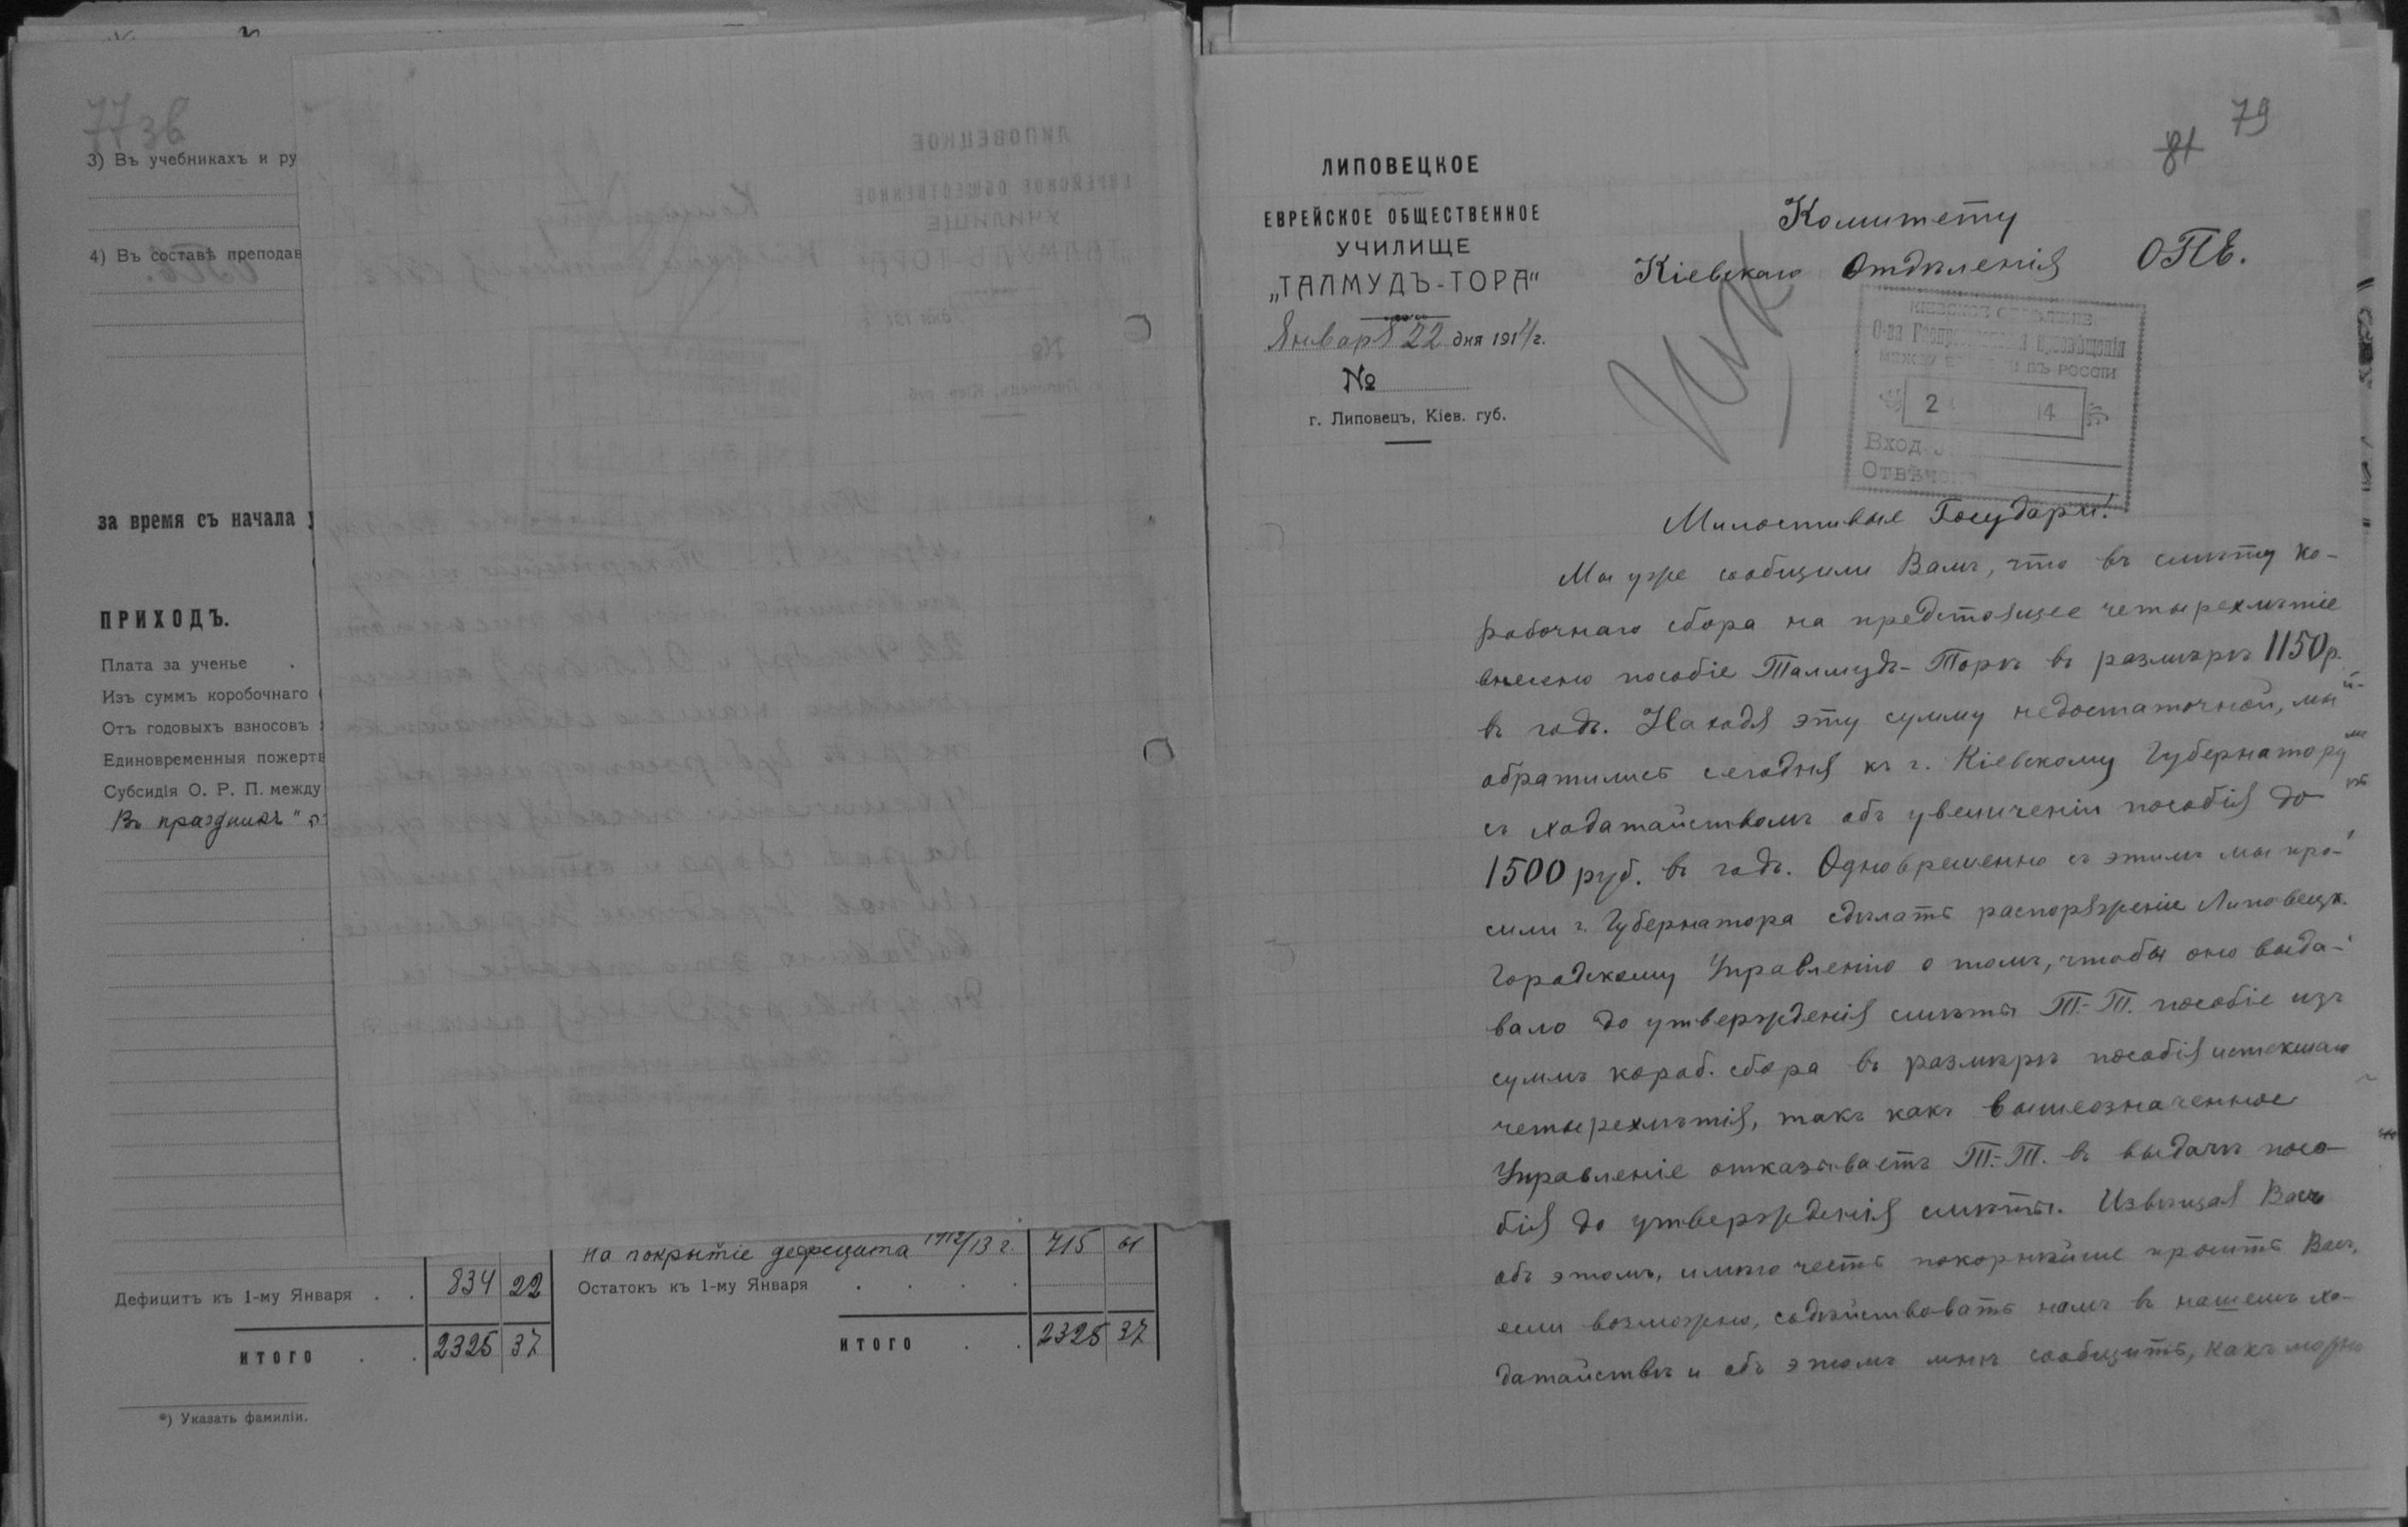 77 зв
3) Въ учебникахъ и ру
4) Въ составѣ преподав
за время съ начала
ПРИХОДЪ.
Плата за ученье .
Изъ суммъ коробочнаго
Отъ годовыхъ взносовъ
Единовременныя пожертв
Субсидія О. Р. П. между
Въ праздникъ "
на покрытіе дефецита 1912/13 г. 715 61
Дефицитъ къ 1-му Января . . 834 22
Остатокъ къ 1-му Января . . . .
ИТОГО . . 2325 37
ИТОГО . . 2325 37
*) Указать фамиліи.
79
81
ЛИПОВЕЦКОЕ
ЕВРЕЙСКОЕ ОБЩЕСТВЕННОЕ
УЧИЛИЩЕ
„ТАЛМУДЪ-ТОРА"
Января 22 дня 1914 г.
№
г. Липовецъ, Кіев. губ.
Комитету
Кіевскаго Отдѣленія ОПЕ.
КІЕВСКОЕ ОТДѢЛЕНІЕ
О-ва просвѣщенія
между въ РОССІИ
2 14
Вход.
Отвѣчено
Милостивые Государи!
Мы уже сообщили Вамъ, что въ смѣту ко-
робочнаго сбора на предстоящее четырехлѣтіе
внесено пособіе Талмудъ-Торѣ въ размѣрѣ 1150 р.
въ годъ. Находя эту сумму недостаточной, мы
обратились сегодня къ г. Кіевскому Губернатору
съ ходатайствомъ объ увеличеніи пособія до
1500 руб. въ годъ. Одновременно съ этимъ мы про-
сили г. Губернатора сдѣлать распоряженіе Липовецк.
Городскому Управленію о томъ, чтобы оно выда-
вало до утвержденія смѣты Т.-Т. пособіе изъ
суммъ короб. сбора въ размѣрѣ пособія истекшаго
четырехлѣтія, такъ какъ вышеозначенное
Управленіе отказываетъ Т.-Т. въ выдачѣ посо-
бія до утвержденія смѣты. Извѣщая Васъ
объ этомъ, имѣю честь покорнѣйше просить Васъ,
если возможно, содѣйствовать намъ въ нашемъ хо-
датайствѣ и объ этомъ мнѣ сообщить, какъ можно